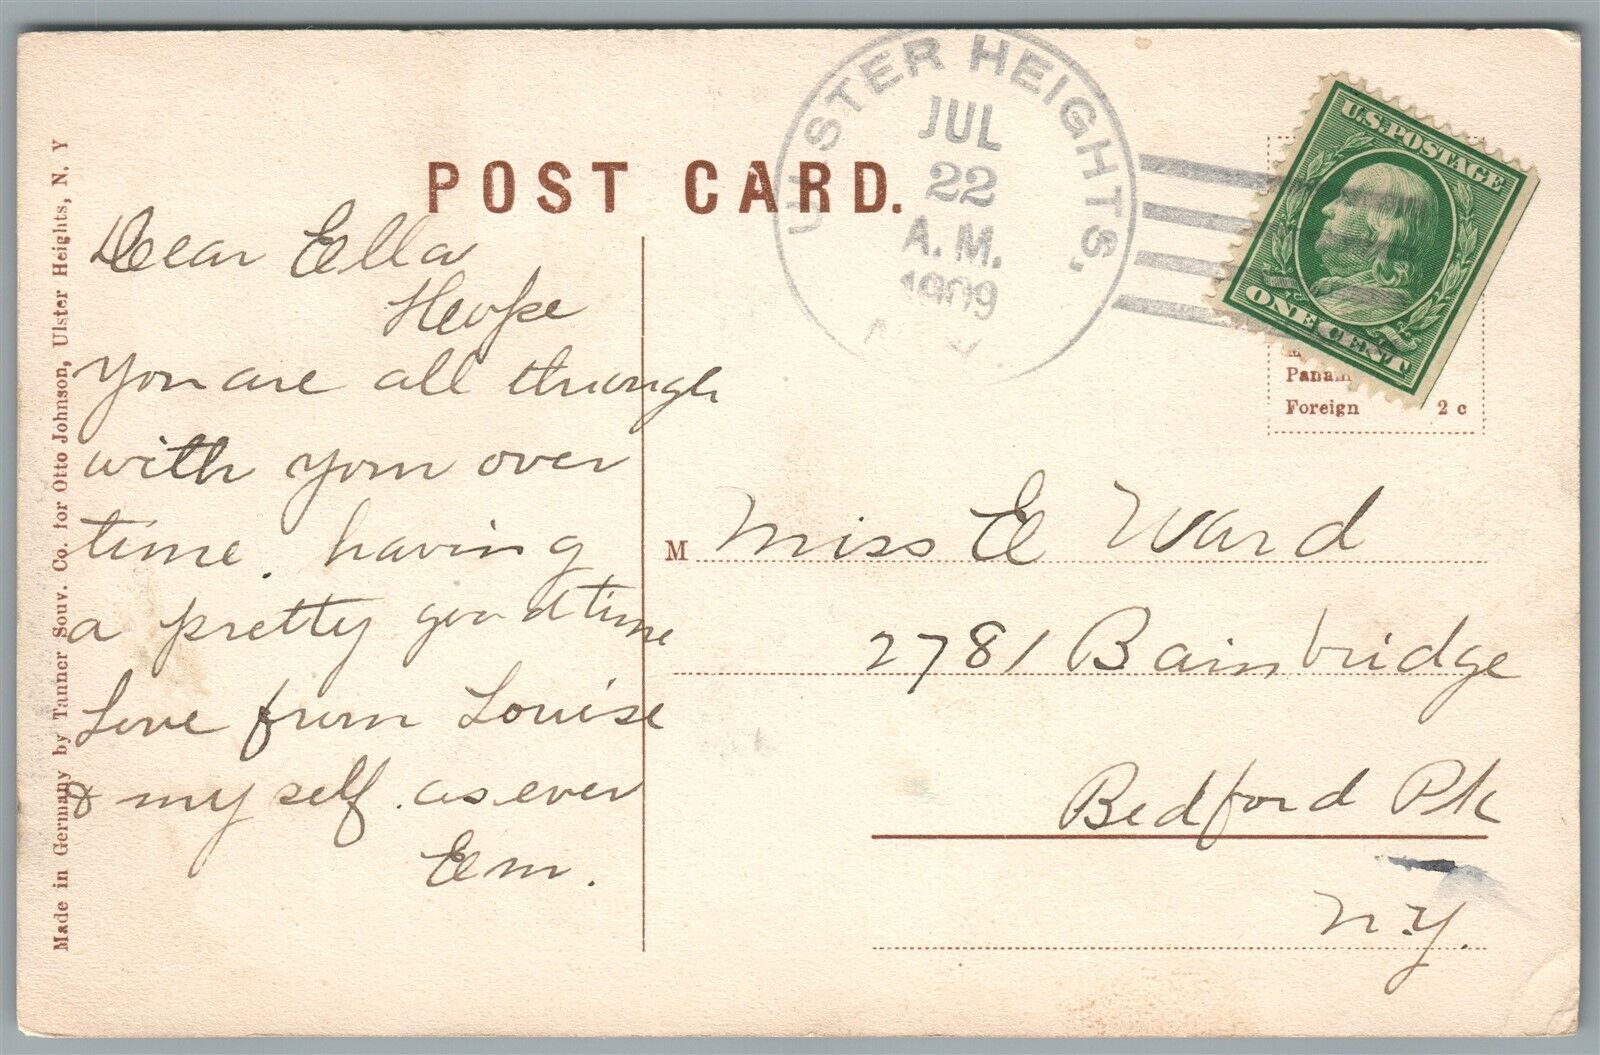 POST CARD.
ULSTER HEIGHTS,
JUL
22
A. M.
1909
N. Y.
U.S. POSTAGE
ONE CENT
Foreign 2 c
Dear Ella
Hope
you are all through
with your over
time. having
a pretty good time
Love from Louise
& my self. as ever
Em.
M Miss E Ward
2781 Bainbridge
Bedford Pk
N.Y.
Made in Germany by Tanner Souv. Co. for Otto Johnson, Ulster Heights, N. Y